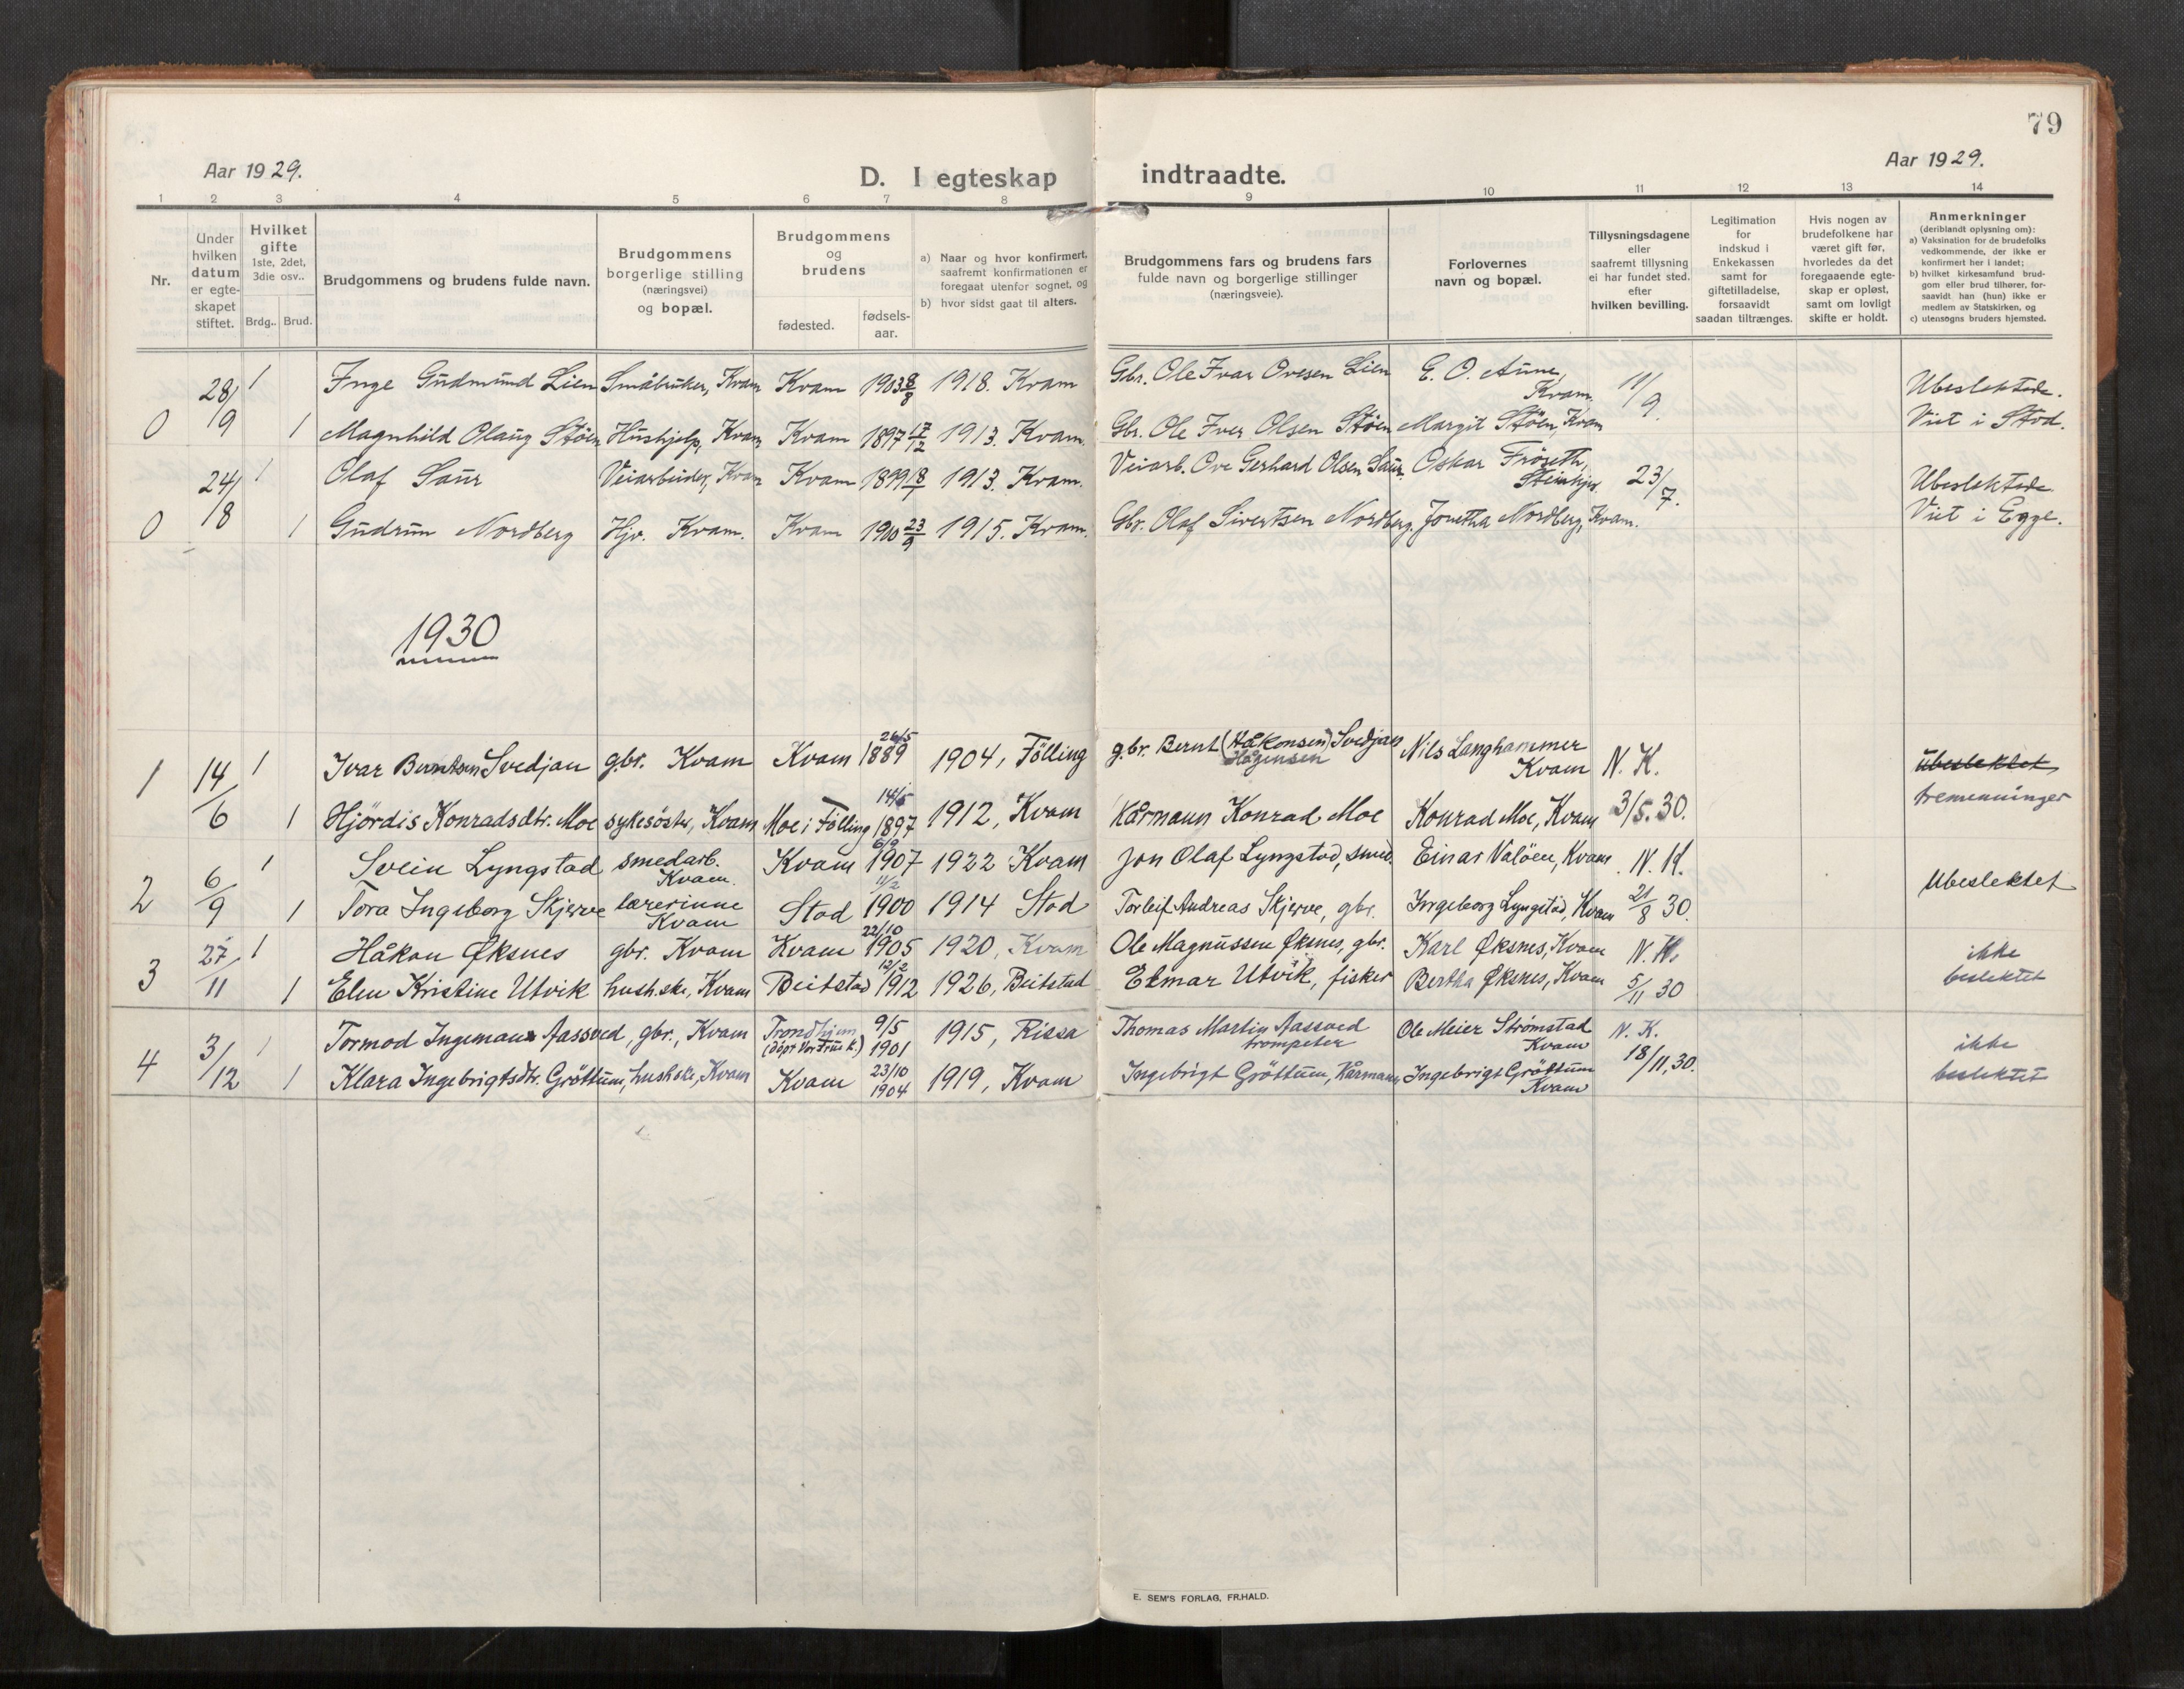 79
Aar 1929.
D. I egteskap indtraadte.
Aar 1929.
1 2 3 4 5 6 7 8 9 10 11 12 13 14
Nr.
Under
hvilken
datum
er egte-
skapet
stiftet.
Hvilket
gifte
1ste, 2det,
3die osv..
Brdg.. Brud.
Brudgommens og brudens fulde navn.
Brudgommens
borgerlige stilling
(næringsvei)
og bopæl.
Brudgommens
og
brudens
fødested.
fødsels-
aar.
a) Naar og hvor konfirmert,
saafremt konfirmationen er
foregaat utenfor sognet, og
b) hvor sidst gaat til alters.
Brudgommens fars og brudens fars
fulde navn og borgerlige stillinger
(næringsveie).
Forlovernes
navn og bopæl.
Tillysningsdagene
eller
saafremt tillysning
ei har fundet sted.
efter
hvilken bevilling.
Legitimation
for
indskud i
Enkekassen
samt for
giftetilladelse,
forsaavidt
saadan tiltrænges.
Hvis nogen av
brudefolkene har
været gift før,
hvorledes da det
foregaaende egte-
skap er opløst,
samt om lovligt
skifte er holdt.
Anmerkninger
(deriblandt oplysning om):
a) Vaksination for de brudefolks
vedkommende, der ikke er
konfirmert her i landet;
b) hvilket kirkesamfund brud-
gom eller brud tilhører, for-
saavidt han (hun) ikke er
medlem av Statskirken, og
c) utensogns bruders hjemsted.
0 28/9 1 Inge Gudmund Lien Småbruker, Kvam Kvam 1903 8/8 1918. Kvam Gbr. Ole Ivar Ovesen Lien E. O. Aune, Kvam. 11/9 Ubeslektede.
1 Magnhild Olaug Stöen Hushjelp, Kvam Kvam 1897 17/12 1913. Kvam. Gbr. Ole Iver Olsen Stöen Margit Stöen, Kvam Viet i Stod.
0 24/8 1 Olaf Saur Veiarbeider, Kvam Kvam 1899 18/7 1913. Kvam. Veiarb. Ove Gerhard Olsen Saur. Oskar Fröseth, Steinkjer. 23/7. Ubeslektede
1 Gudrun Nordberg Hjv. Kvam. Kvam 1900 23/9 1915. Kvam. Gbr. Olaf Sivertsen Nordberg. Jonetha Nordberg, Kvam. Viet i Egge.
1930
1 14/6 1 Ivar Berntsen Svedjan gbr. Kvam Kvam 26/5 1889 1904, Fölling gbr. Bernt (Håkonsen) Svedjan Hågensen Nils Langhammer Kvam N. K. Ubeslektet,
1 Hjördis Konradsdtr. Moe sykesöster, Kvam Moe i Fölling 14/5 1897 1912, Kvam Kårmann Konrad Moe Konrad Moe, Kvam 3/5. 30. tremenninger
2 6/9 1 Svein Lyngstad smedarb. Kvam. Kvam 6/9 1907 1922 Kvam Jon Olaf Lyngstad, smed. Einar Valöen, Kvam N. K. Ubeslektet
1 Tora Ingeborg Skjerve lærerinne Kvam Stod 11/2 1900 1914 Stod Torleif Andreas Skjerve, gbr. Ingeborg Lyngstad, Kvam 21/8 30.
3 27/11 1 Håkon Øksnes gbr. Kvam Kvam 22/10 1905 1920, Kvam Ole Magnussen Øksnes, gbr. Karl Øksnes, Kvam N. K. ikke
1 Elen Kristine Utvik hush.ske, Kvam Beitstad 12/2 1912 1926, Beitstad Elmar Utvik, fisker Bertha Øksnes, Kvam 5/11 30 beslektet
4 3/12 1 Tormod Ingemann Aassved, gbr., Kvam Trondhjem (döpt Vor Frue k.) 9/5 1901 1915, Rissa Thomas Martin Aassved trompeter Ole Meier Strömstad Kvam N. K. ikke
1 Klara Ingebrigtsdtr. Gröttum, hushske, Kvam Kvam 23/10 1904 1919, Kvam Ingebrigt Gröttum, Kårmann Ingebrigt Gröttum Kvam 18/11, 30. beslektet
E. SEM'S FORLAG, FR.HALD.